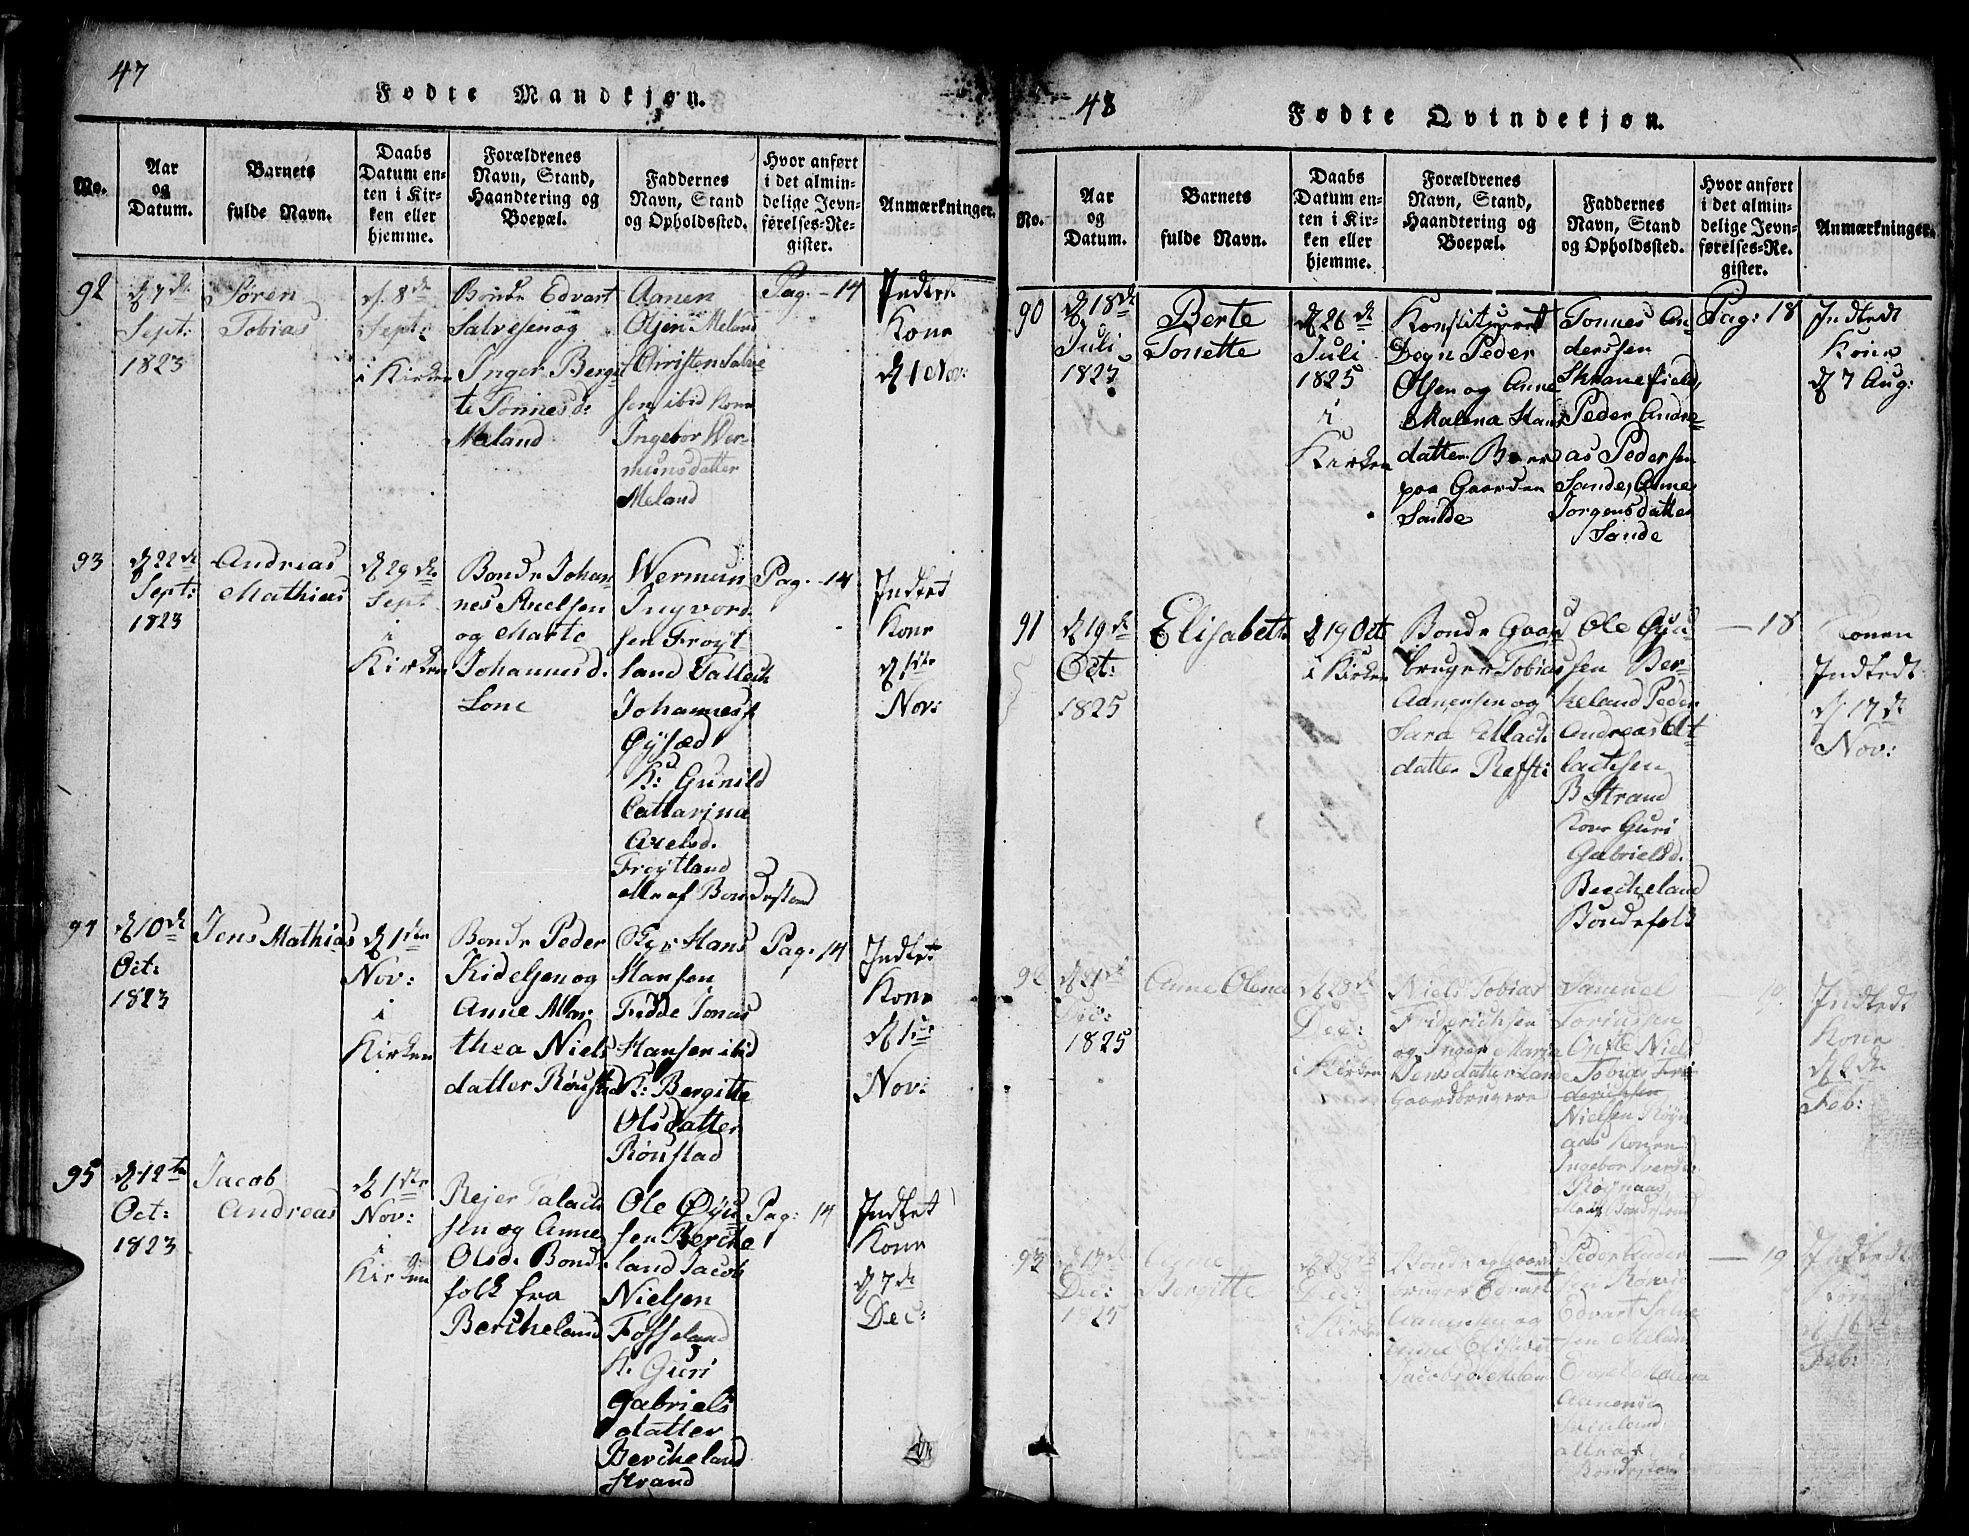 47
Fødte Mandkjøn.
No.
Aar
og
Datum.
Barnets
fulde Navn.
Daabs
Datum en-
ten i Kir-
ken eller
hjemme.
Forældrenes
Navn, Stand,
Haandtering og
Boepæl.
Faddernes
Navn, Stand
og Opholdssted.
Hvor anført
i det almin-
delige Jevn-
førelses-Re-
gister.
Anmærkninger.
92
d 7de
Sept:
1823
Søren
Tobias
d. 8de
Sept:
i Kirken
Bonde Edvart
Salvesen og
Inger Bergit
te Tonnesd:
Meland
Aanen
Olsen Meland
Christen Salve
sen ibid Kone
Ingebor Wer-
munsdatter
Meland
Pag. - 14
Indten
Kone
d 1 Nov:
93
d 22de
Sept:
1823
Andreas
Mathias
d 29de
Sept
i
Kirken
Bonde Johan-
nes
og Marte
Johannesd.
Lone
Wermun
Ingvord
sen Froyt-
land Tallech
Johannes
Øysæd
K: Gunild
Cattarina
Axelsd.
Froytland
alle af Bondestand
Pag. - 14
Indtet
Kone
d 1ste
Nov:
94
d 10de
Oct:
1823
Jens Mathias
d 1ste
Nov:
i
Kirken
Bonde Peder
Kidelsen og
Anne Mar
thea Niels
datter Rønstad
Hans
Hansen
Fidde Jonas
Hansen ibid
K: Bergitte
Olsdatter
Rønstad
Pag: 14
Indtet
Kone
d 1ste
Nov:
95
d 12te
Oct:
1823
Jacob
Andreas
d 1ste
Nov:
i
Kirken
Rejer Talach
sen og Anne
Olsd. Bonde
folk fra
Bercheland
Ole Øyu
sen Berche
land Jacob
Nielsen
Fosseland
K. Guri
Gabriels
datter
Bercheland
strand
Pag: 14
Indtet
Kone
d 7de
Dec:
48
Fødte Qvindekjøn.
No.
Aar
og
Datum.
Barnets
fulde Navn.
Daabs
Datum en-
ten i Kir-
ken eller
hjemme.
Forældrenes
Navn, Stand,
Haandtering og
Boepæl.
Faddernes
Navn, Stand
og Opholdssted.
Hvor anført
i det almin-
delige Jevn-
førelses-Re-
gister.
Anmærkninger.
90
d 18de
Juli
1823
Berte
Tonette
d 26de
Juli
1825
i
Kirken
Konstitueret
Degn Peder
Olsen og Anne
Malena Hans
datter Boer
paa Gaarden
Sande
Tonnes An-
derssen
Skranefield,
Peder Andre-
as Pedersen
Sande, Anne
Jorgensdatter
Sande
Pag: 18
Indtedt
Kone
d 7 Aug:
91
d 19de
Oct:
1825
Elisabeth
d 19 Oct
i Kirken
Bonde Gaard
bruger Tobias
Aanensen og
Sara
datter Refsti
Ole Øyu
sen Ber-
keland Peder
Andreas At-
lachsen
B Strand
Kone Guri
Gabrielsd.
Bercheland
Bondefolk
— 18
Konen
Indtedt
d. 17de
Nov:
92
d 21de
Dec:
1825
Anne Olena
Dec:
i Kirken
Niels Tobias
Friderichsen
og Inger Maria
Jensdatter Lande
Gaardbrugere
Samuel
Toriussen
Opofte Niels
Tobias Fri-
derichsen
Nielsen Røyn
aas Konen
Ingebor Iversd.
Røynaas
alle af Bondestand
— 19
Indtedt
Kone
d 2de
Feb:
93
d 17de
Dec:
1825
Anne
Bergitte
Dec:
i Kirken
Bonde og Gaard
bruger Edvart
Aanensen og
Anne Elisabet
Peder Ander
sen
Edvart Salve
sen Meland
Aanensd.
alle af
Bondestand
— 19
Indtedt
Kone
d 16de
Feb: